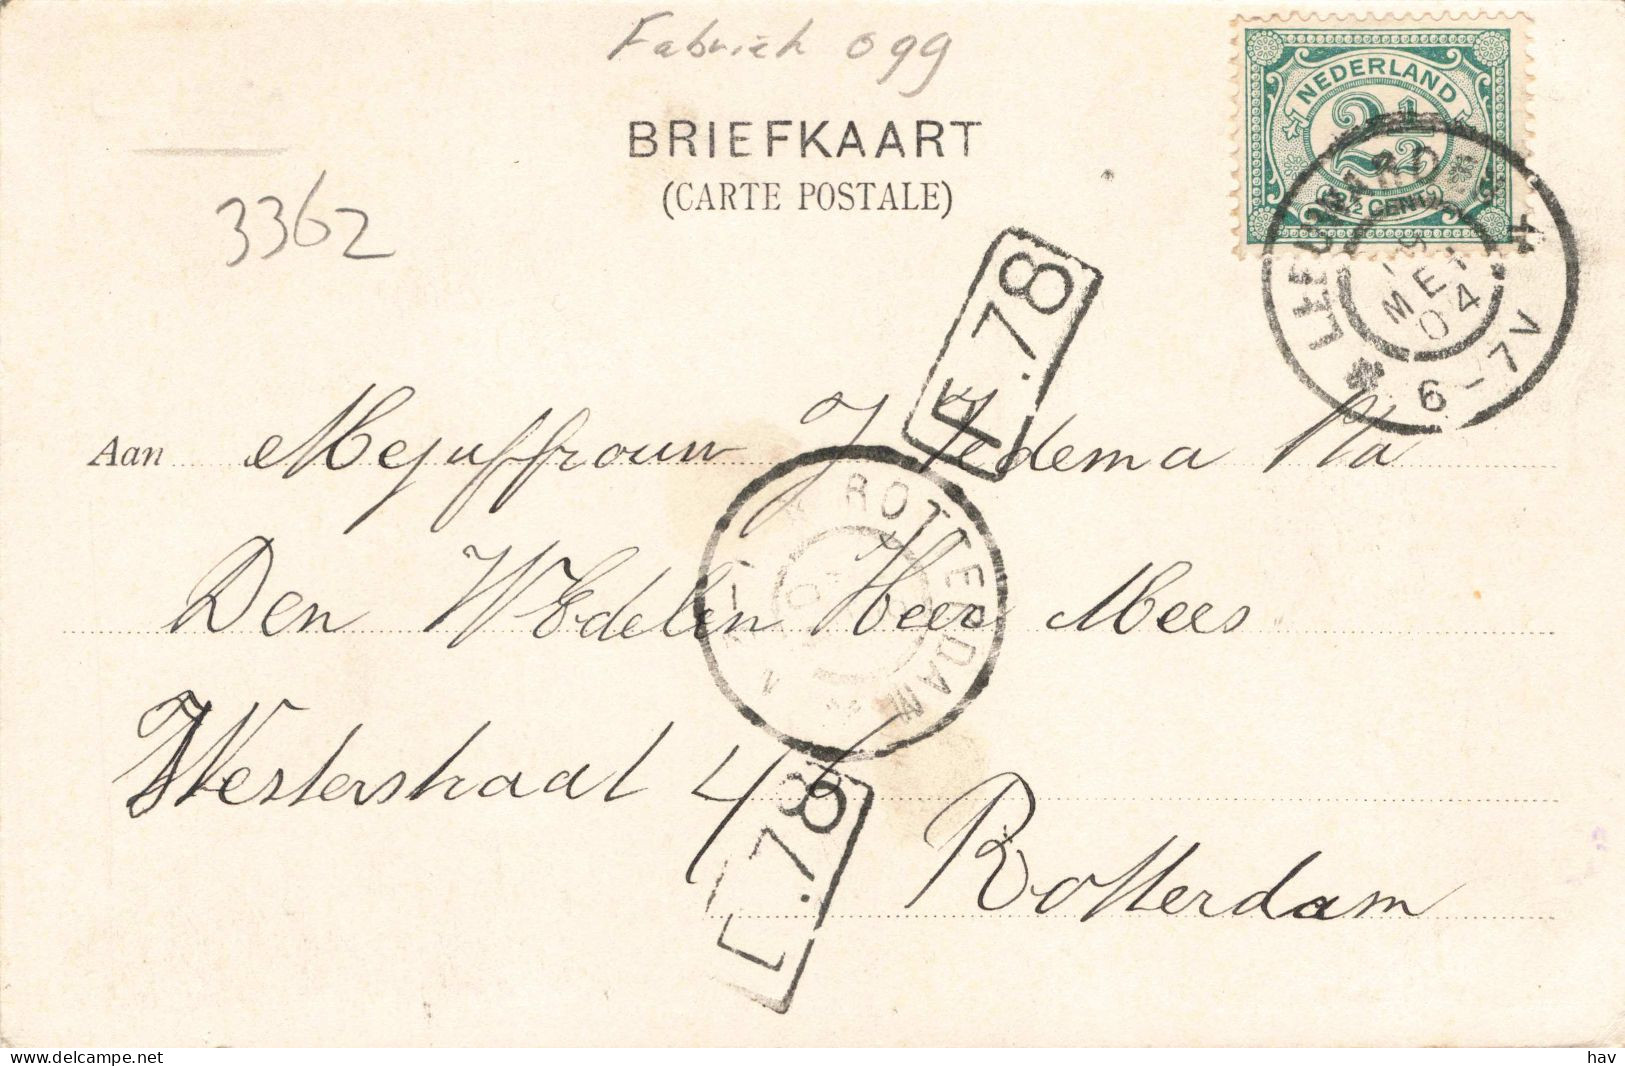 Fabriek 099
BRIEFKAART
(CARTE POSTALE)
3362
NEDERLAND
2½
2½ CENT
LEEUWARDEN 4
MEI
04
6-7V
F.78
Aan Mejuffrouw J Jedema
ROTTERDAM
Den WEdelen Heer Mees
Weststraat 46
.78
Rotterdam
www.delcampe.net
hav